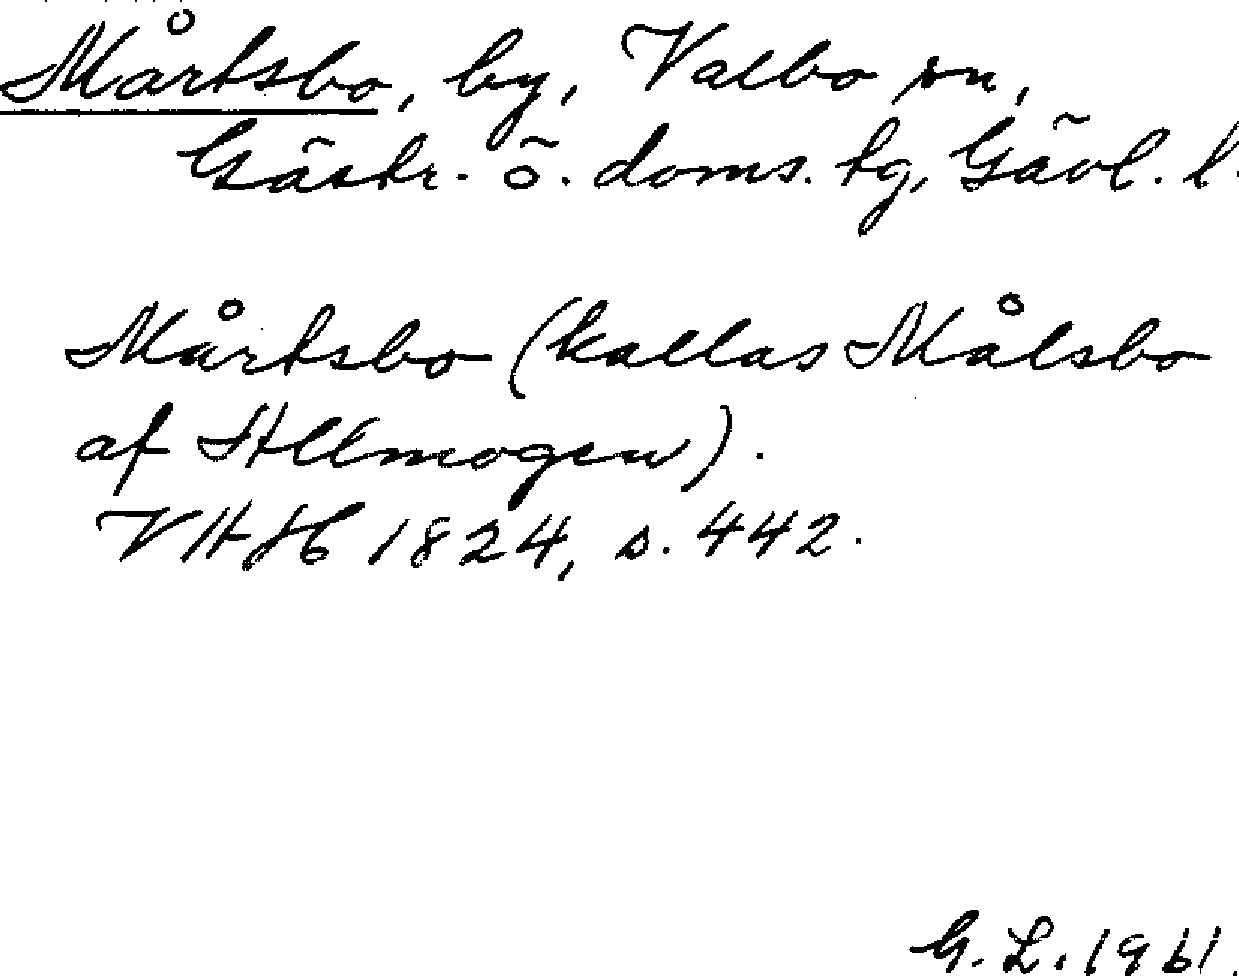 Mårtsbo, by, Valbo sn,
Gästr. ö. doms. tg, Gävl. l.
Mårtsbo (kallas Målsbo
af Allmogen).
VHAH 1824, s. 442.
G. L. 1961.